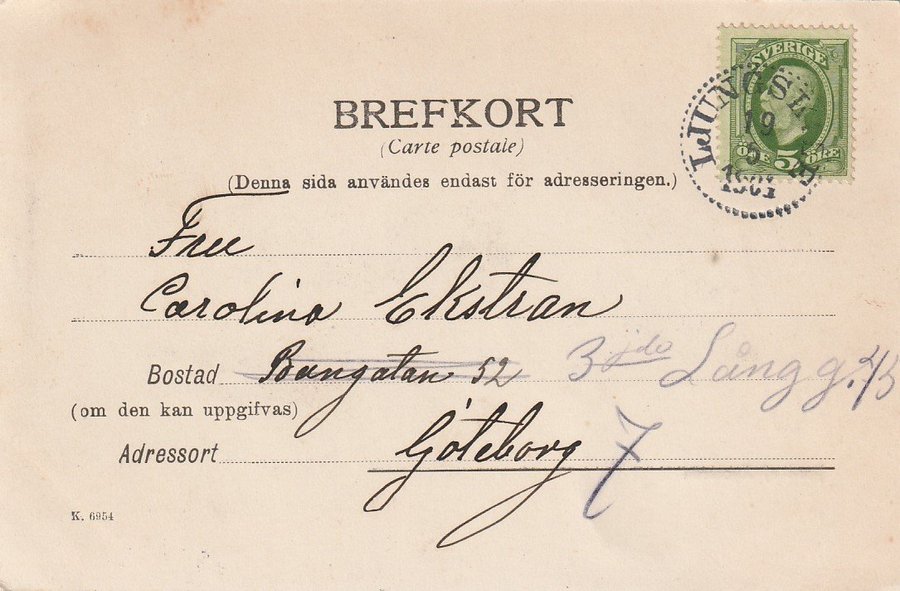 BREFKORT
(Carte postale)
(Denna sida användes endast för adresseringen.)
SVERIGE
ÖRE 5 ÖRE
LJUNGSL
19
5
1901
Fru
Carolina Ekstran
Bostad Bangatan 52 3 jde Långg. 43
(om den kan uppgifvas)
Adressort Göteborg 7
K. 6954